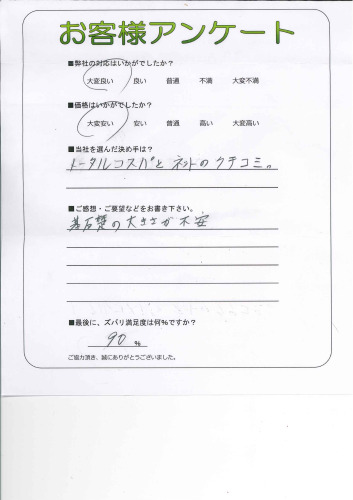 お客様アンケート
■弊社の対応はいかがでしたか？
大変良い 良い 普通 不満 大変不満
■価格はいかがでしたか？
大変安い 安い 普通 高い 大変高い
■当社を選んだ決め手は？
トータルコスパとネットのクチコミ。
■ご感想・ご要望などをお書き下さい。
の大きさが不安
■最後に、ズバリ満足度は何%ですか？
90 %
ご協力頂き、誠にありがとうございました。